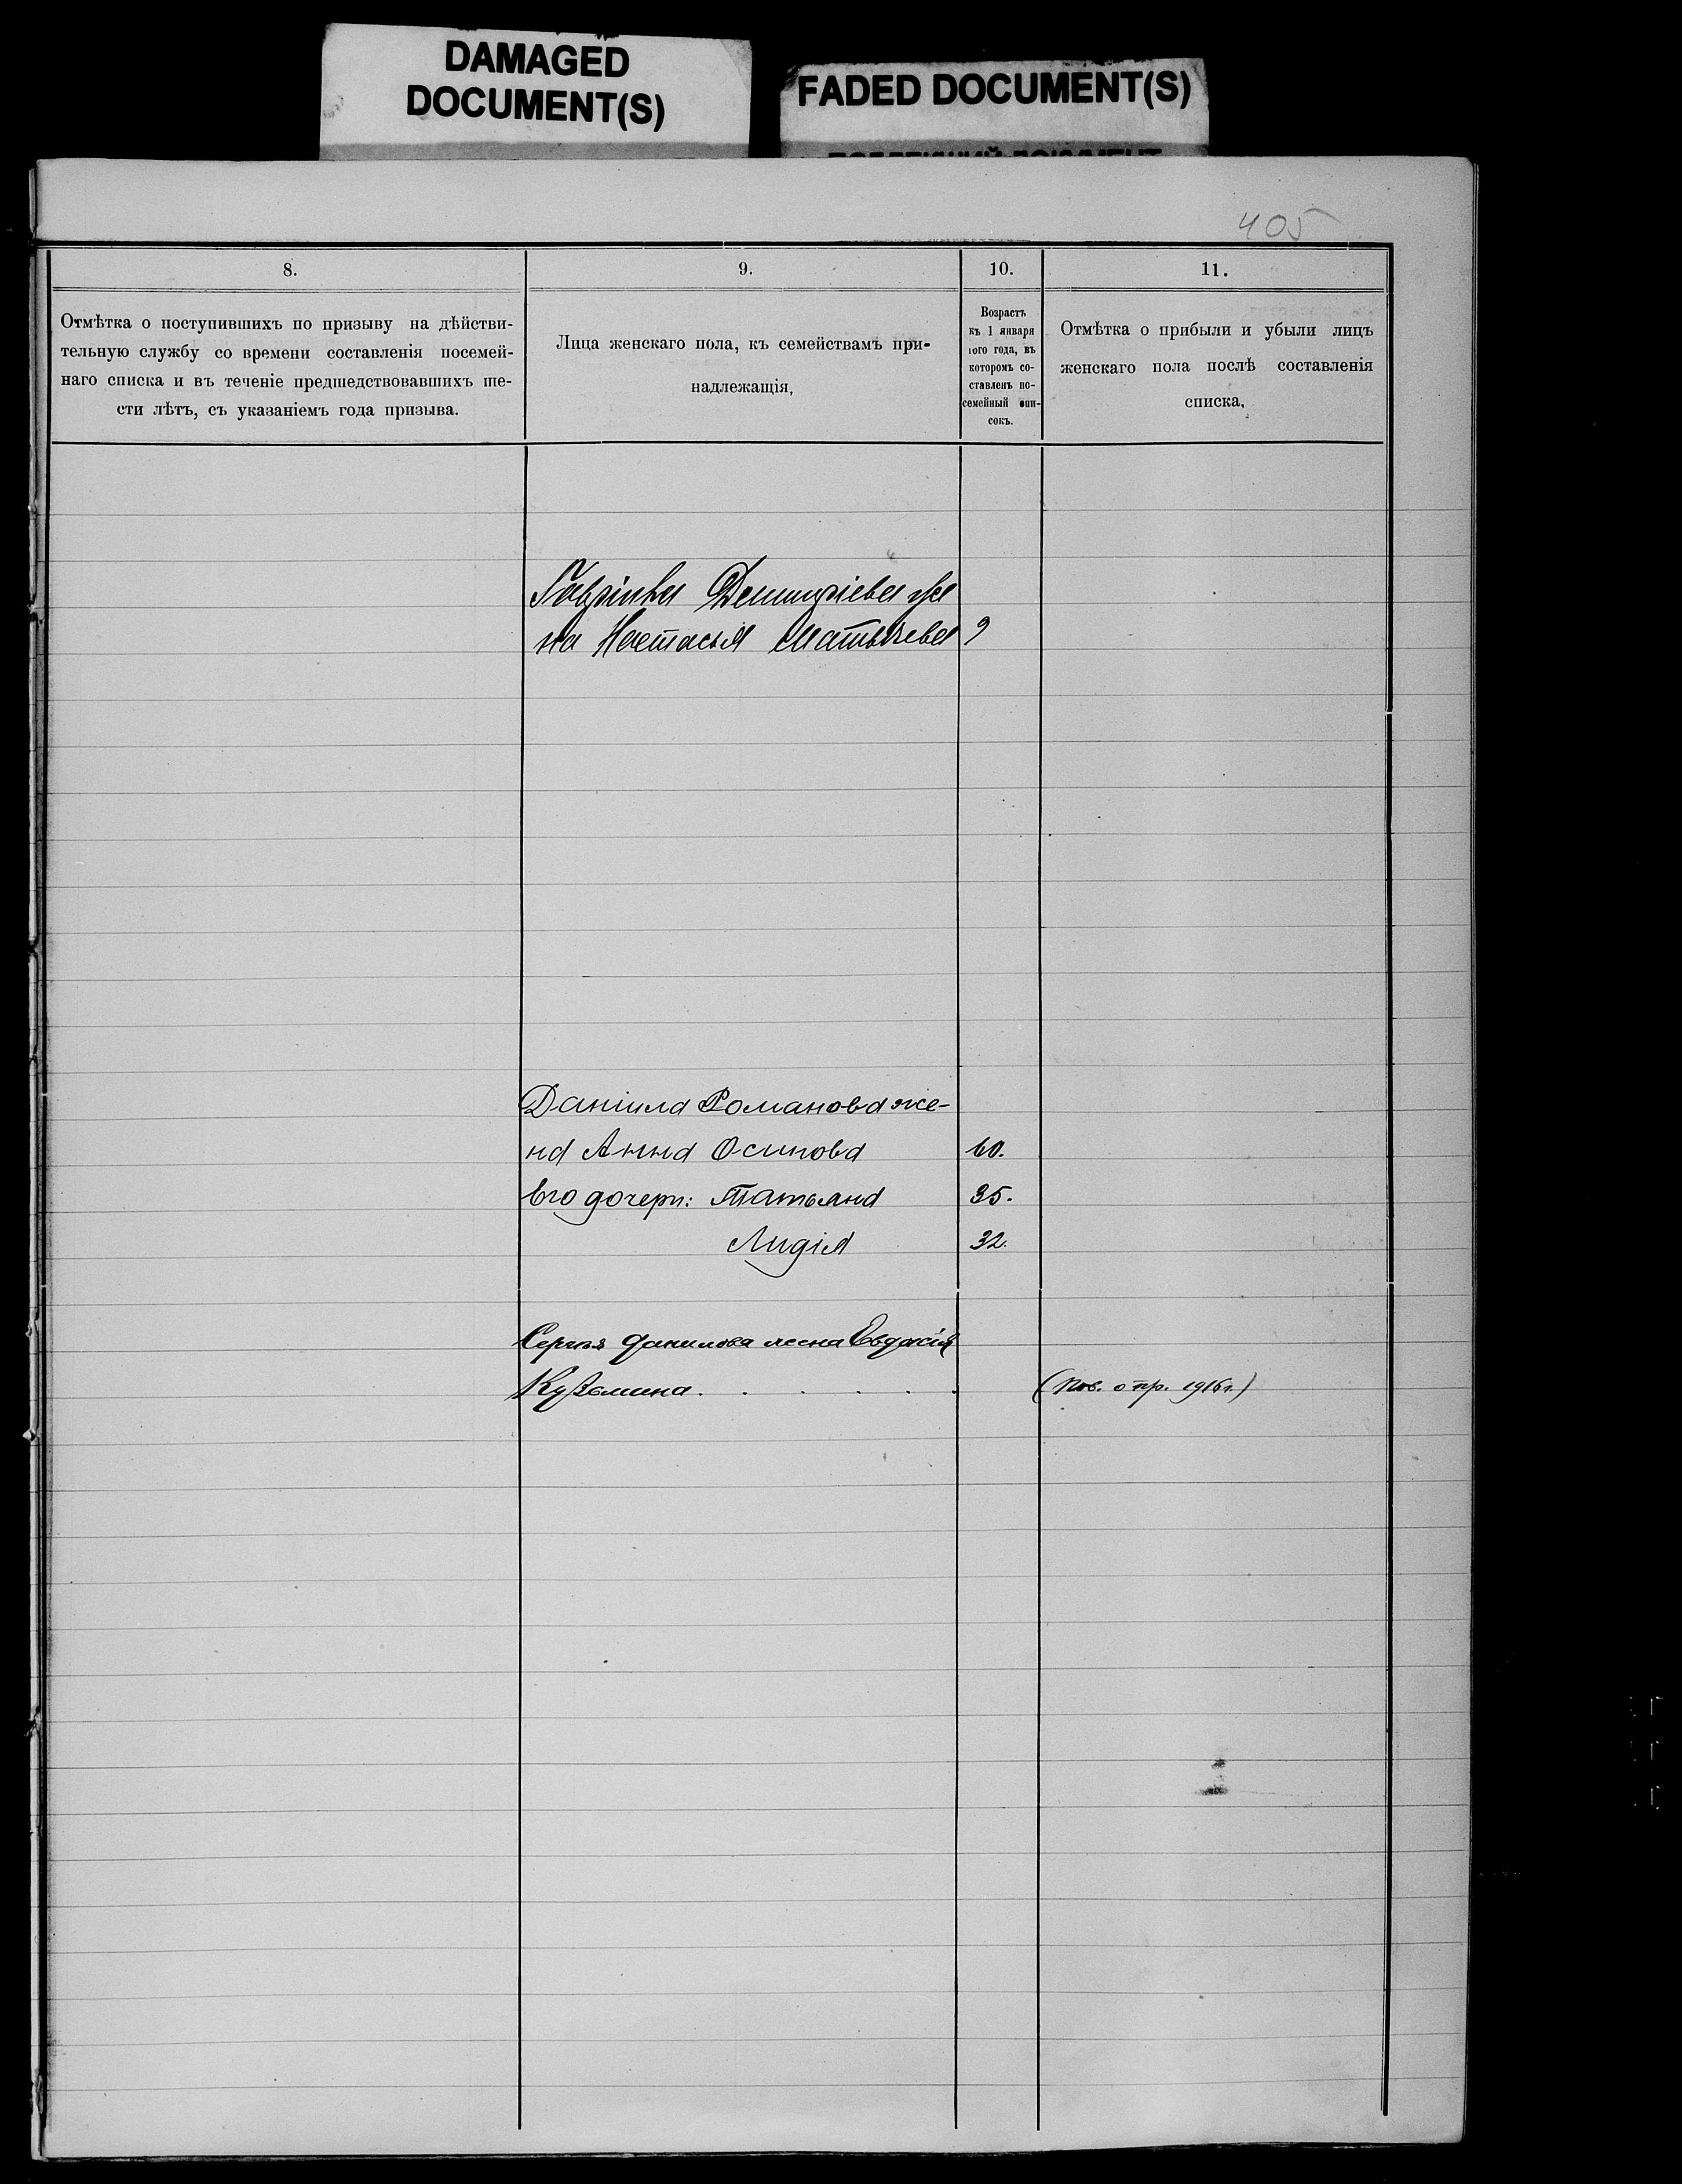 DAMAGED
DOCUMENT(S)
FADED DOCUMENT(S)
405
8.
Отмѣтка о поступившихъ по призыву на дѣйстви-
тельную службу со времени составленія посемей-
наго списка и въ теченіе предшедствовавшихъ ше-
сти лѣтъ, съ указаніемъ года призыва.
9.
Лица женскаго пола, къ семействамъ при-
надлежащія,
10.
Возрастъ
къ 1 января
того года, въ
которомъ со-
ставленъ по-
семейный спи-
сокъ.
11.
Отмѣтка о прибыли и убыли лицъ
женскаго пола послѣ составленія
списка,
Дмитріева же
на Настасья Матвѣева 9
Даніила Романова же-
на Анна Осипова 60.
Его дочери: Татьяна 35.
Лидія 32.
Сергѣя Данилова жена Евдокія
Кузьмина. . . . . . (Пов. о пр. 1916 г.)